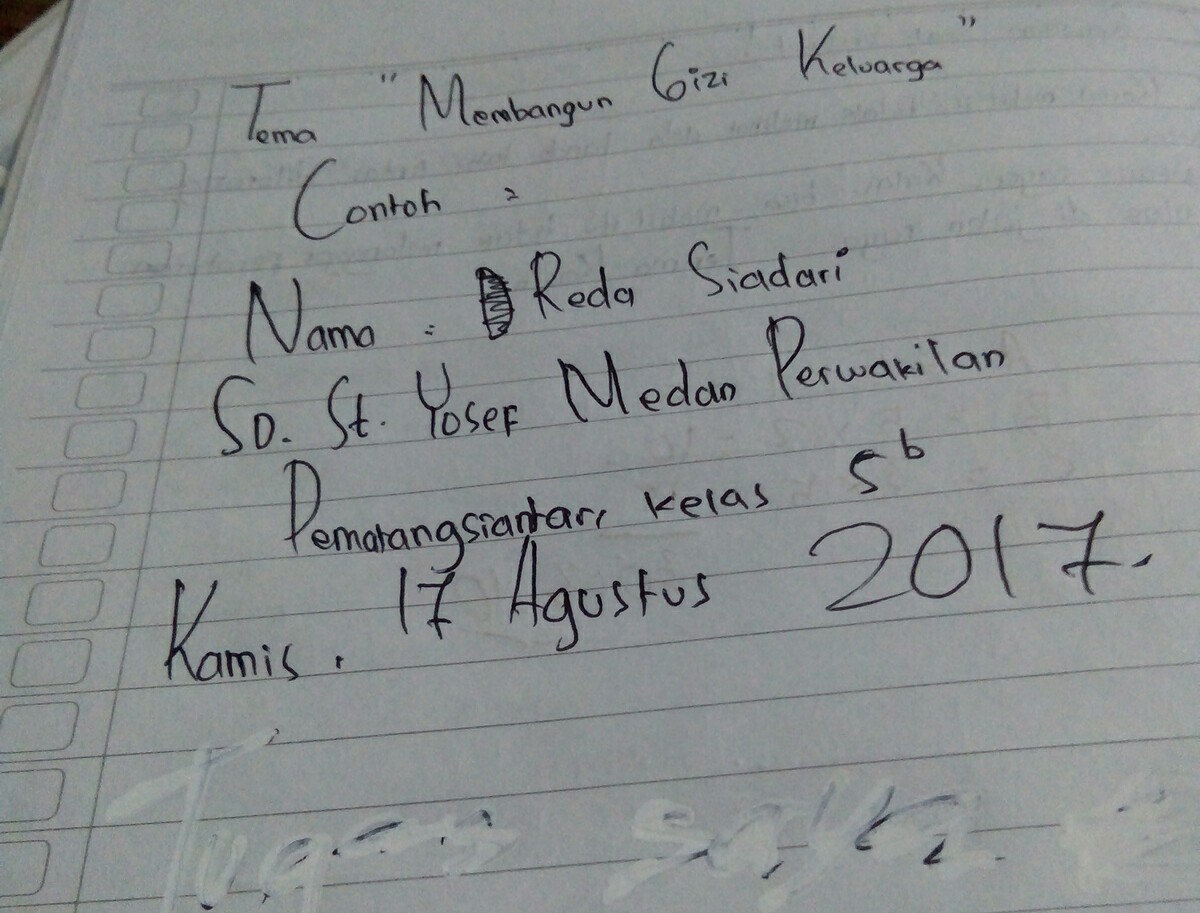 Tema "Membangun Gizi Keluarga"
Contoh :
Nama : Reda Siadari
SD. St. Yosef Medan Perwakilan
Pematangsiantar, kelas 5b
Kamis. 17 Agustus 2017.
Tugas